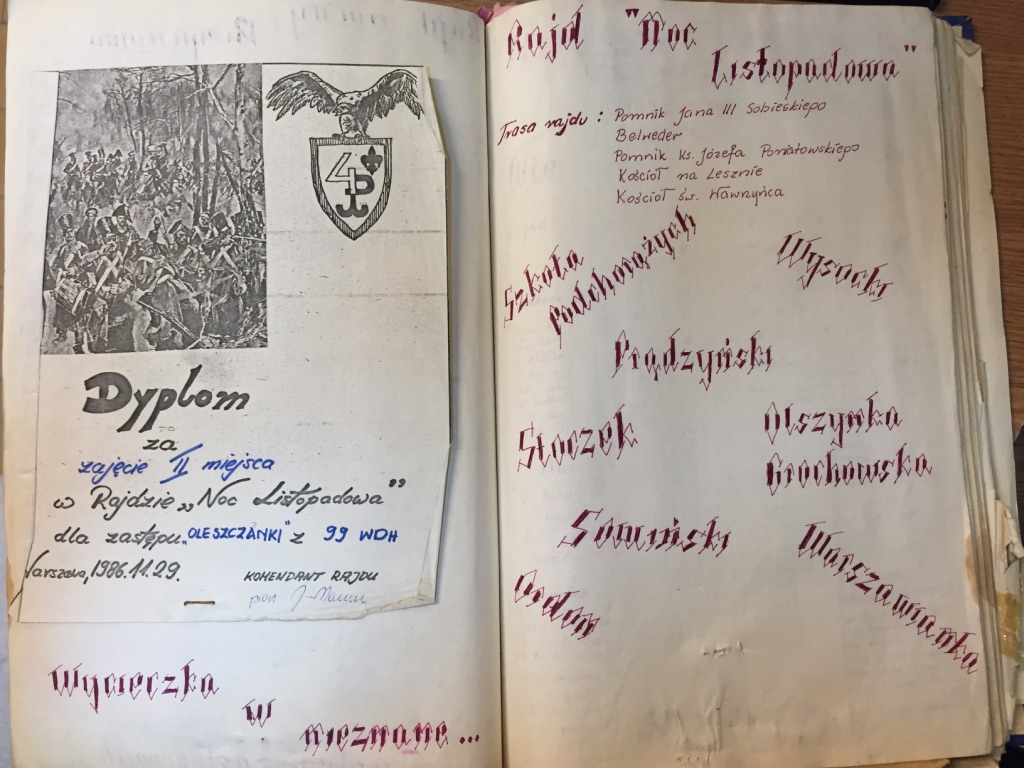 Dyplom
za
zajęcie II miejsca
w Rajdzie „Noc Listopadowa”
dla zastępu „OLESZCZANKI” z 99 WDH
Warszawa, 1986.11.29.
KOMENDANT RAJDU
pion
Wycieczka
w
nieznane...
Rajd "Noc
Listopadowa"
Trasa rajdu : Pomnik Jana III Sobieskiego
Belweder
Pomnik Ks. Józefa Poniatowskiego
Kościół na Lesznie
Kościół św. Wawrzyńca
Szkoła
Podchorążych
Wysocki
Prądzyński
Stoczek
Olszynka
Grochowska
Sowiński
Warszawianka
Ordon